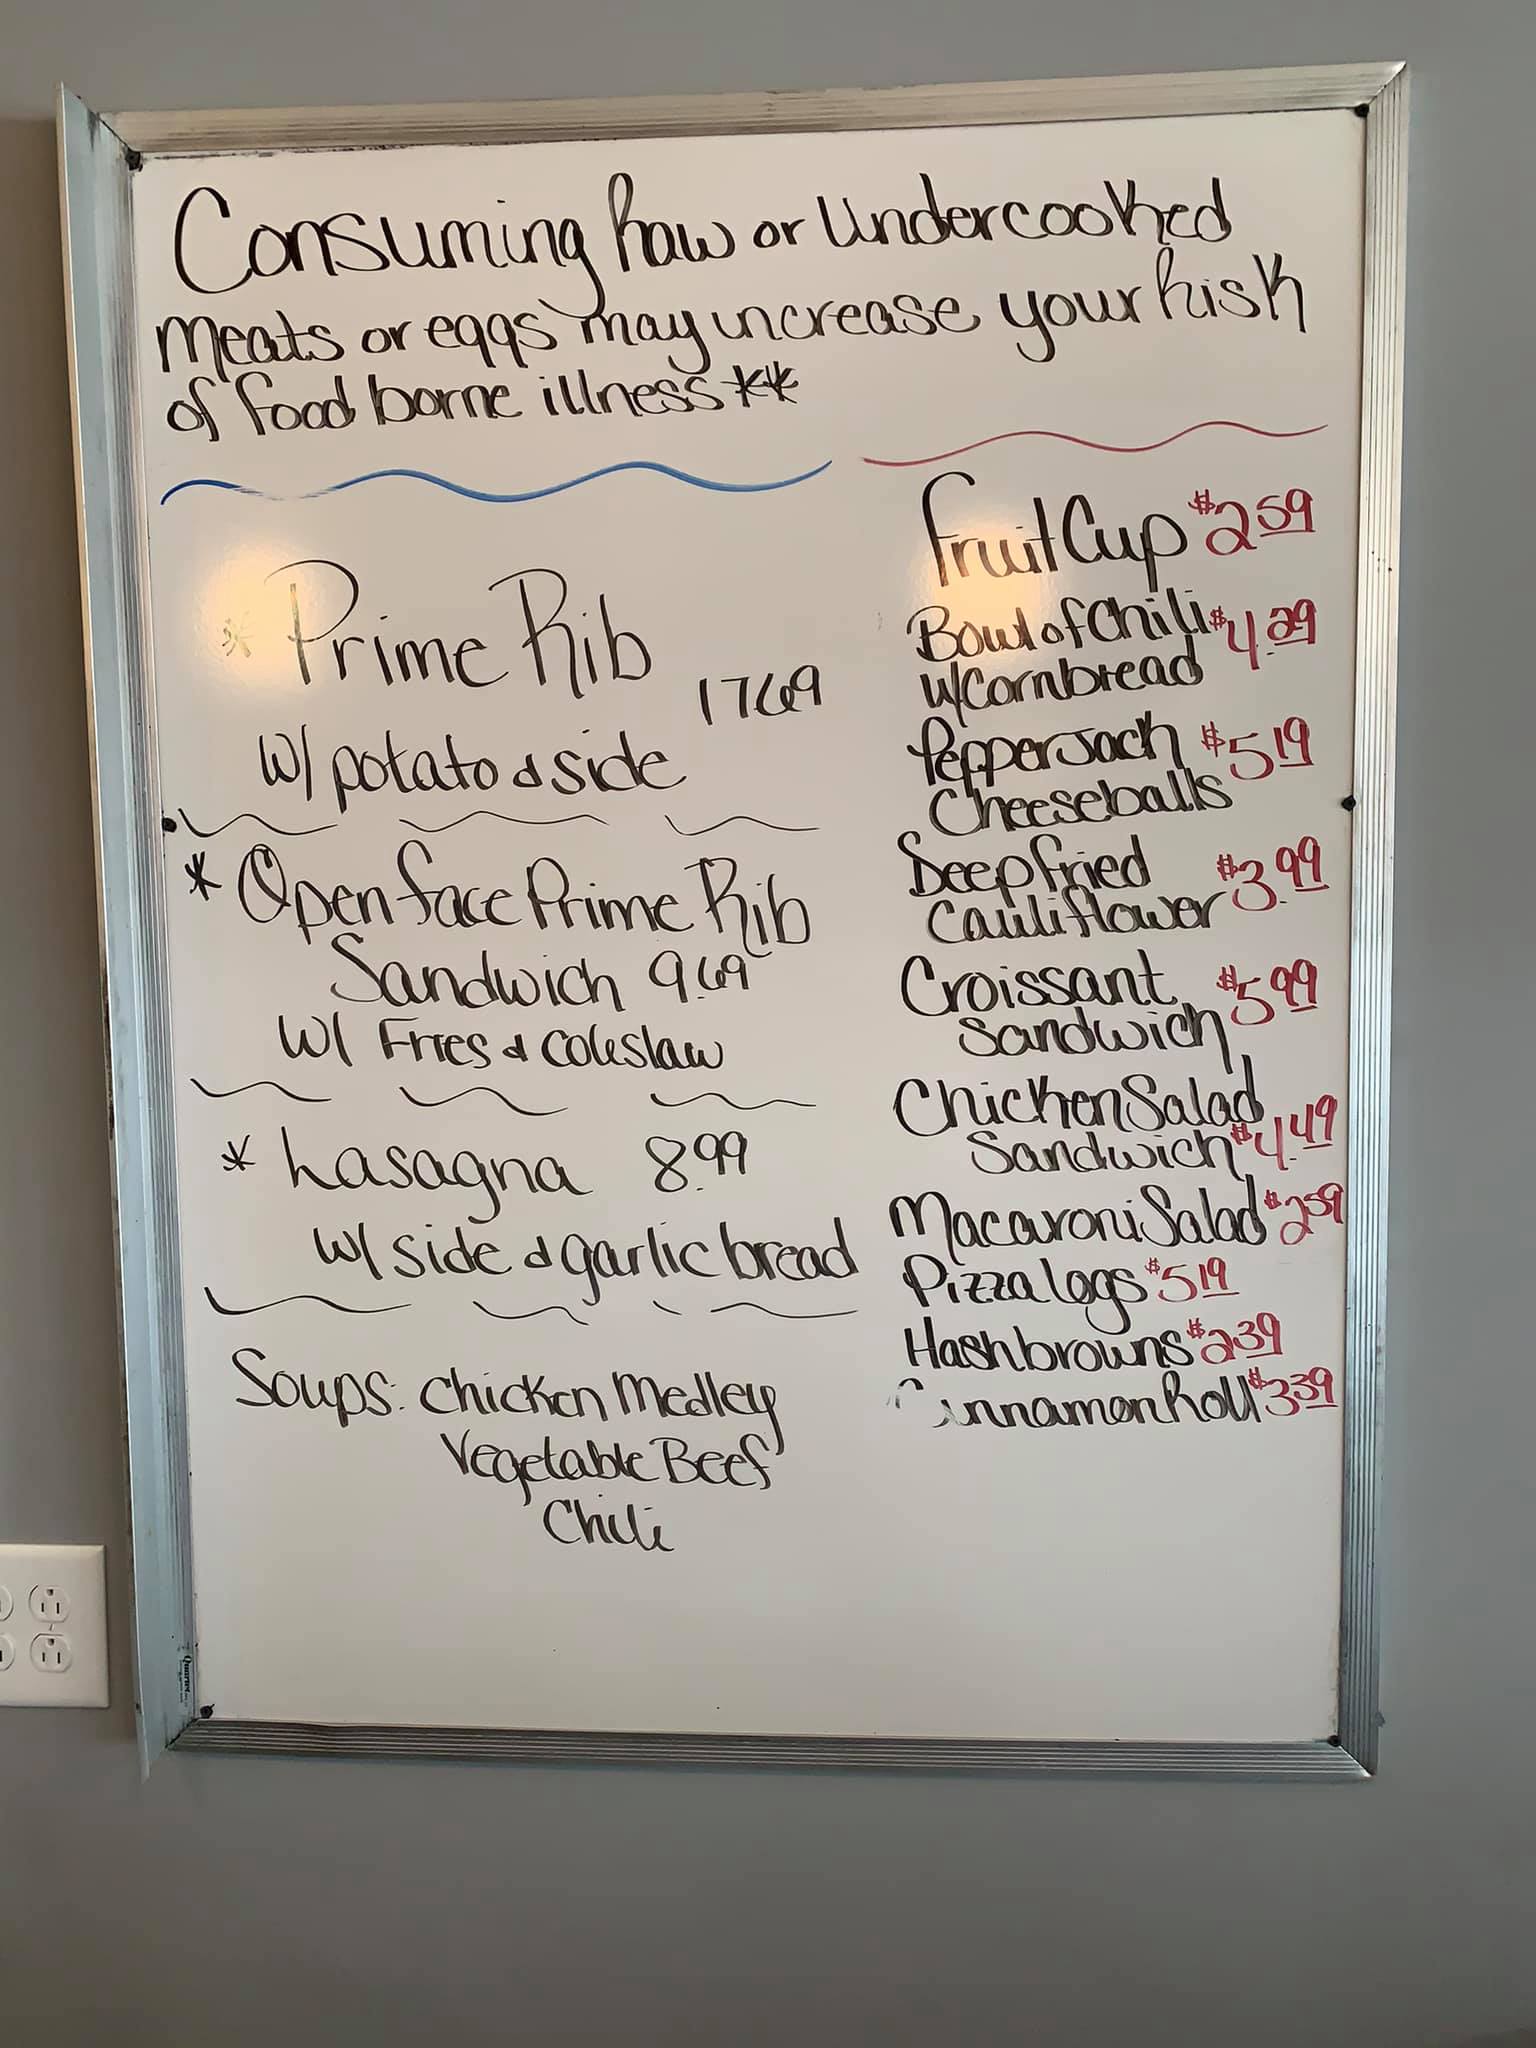 Consuming Raw or Undercooked
Meats or eggs may increase your Risk
of food borne illness**
* Prime Rib
1769
w/ potato & side
* Open face Prime Rib
Sandwich 9.69
w/ Fries & coleslaw
* Lasagna 8.99
w/ side & garlic bread
Soups: Chicken Medley
Vegetable Beef
Chili
Fruit Cup $2 59
Bowl of Chili $4.29
w/ Cornbread
Pepper Jack $5 19
Cheeseballs
Deep Fried $3.99
Cauliflower
Croissant $5 99
Sandwich
Chicken Salad
Sandwich $4.49
Macaroni Salad $2 59
Pizza Logs $5 19
Hashbrowns $2 39
Cinnamon Roll $3 39
Quartet